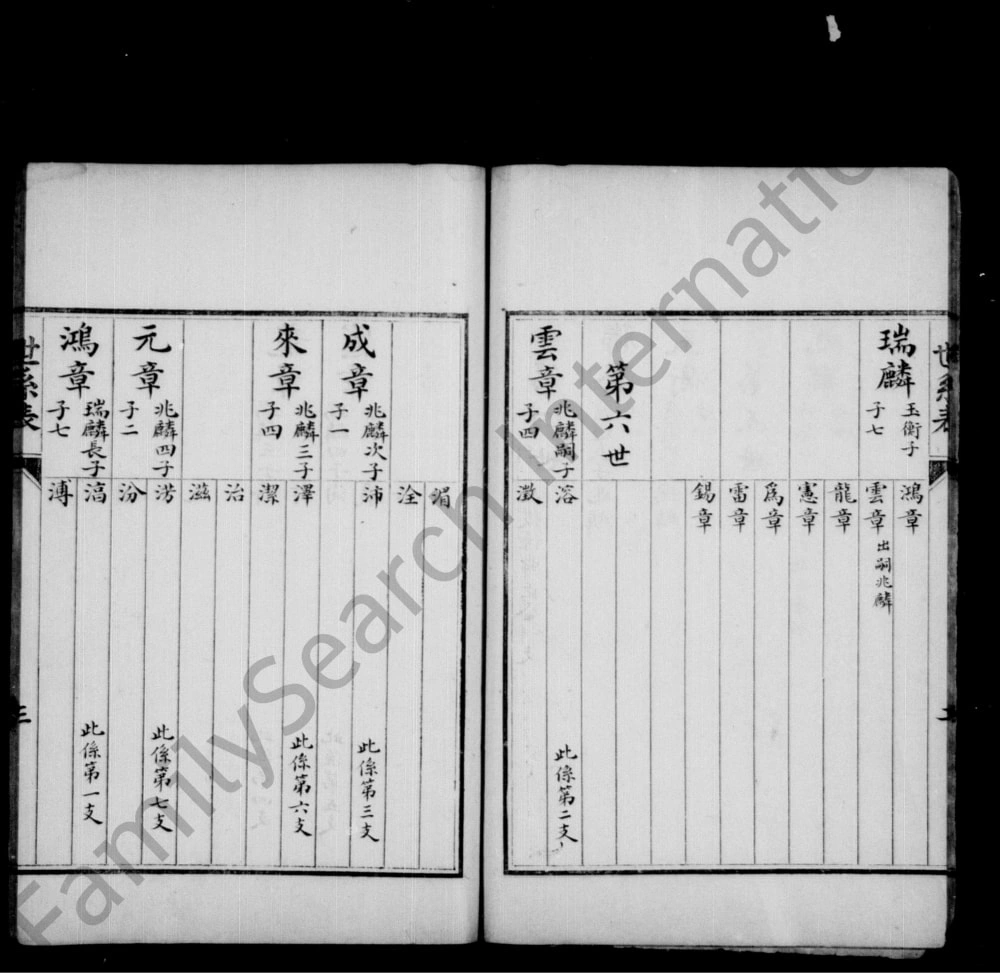 世系表
瑞麟 玉衡子
子七
鴻章
雲章 出嗣兆麟
龍章
憲章
為章
雷章
錫章
第六世
雲章 兆麟嗣子
子四
溶 此係第二支
澂
湄
洤
成章 兆麟次子
子一
沛 此係第三支
來章 兆麟三子
子四
澤 此係第六支
潔
治
滋
元章 兆麟四子
子二
澇 此係第七支
汾
鴻章 瑞麟長子
子七
滈 此係第一支
溥
世系表
三
FamilySearch International